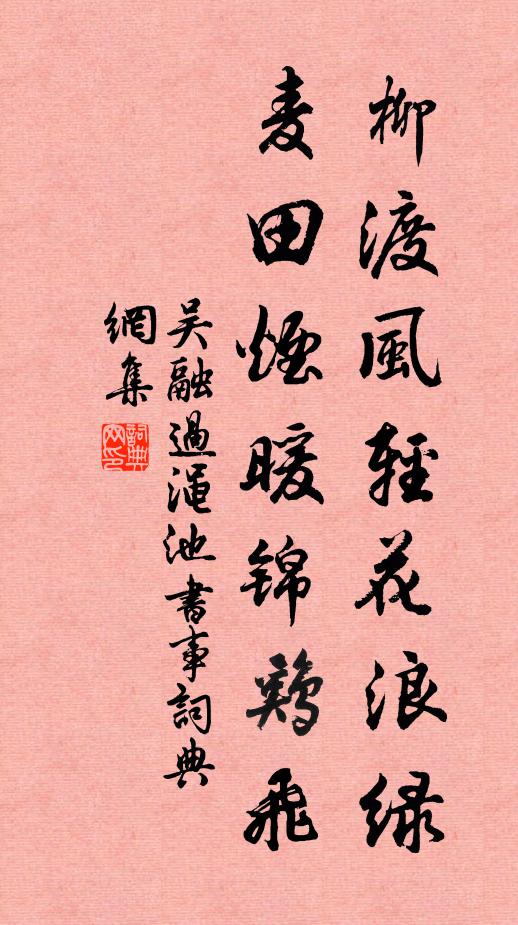 柳渡風輕花浪緑
麦田煙暖锦鷄飛
吴融過澠池書事詞典
網集
詞典
网印